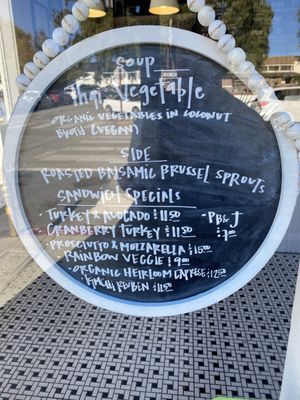 SOUP
Thai Vegetable
ORGANIC VEGETABLES IN COCONUT
BROTH (VEGAN)
SIDE
ROASTED BALSAMIC BRUSSEL SPROUTS
SANDWICH SPECIALS
• TURKEY & AVOCADO $11.50
• PB&J
• CRANBERRY TURKEY $11.50
$7.00
• PROSCIUTTO & MOZZARELLA $15.00
• RAINBOW VEGGIE $9.00
• ORGANIC HEIRLOOM CAPRESE $12.50
• KIMCHI REUBEN $11.50